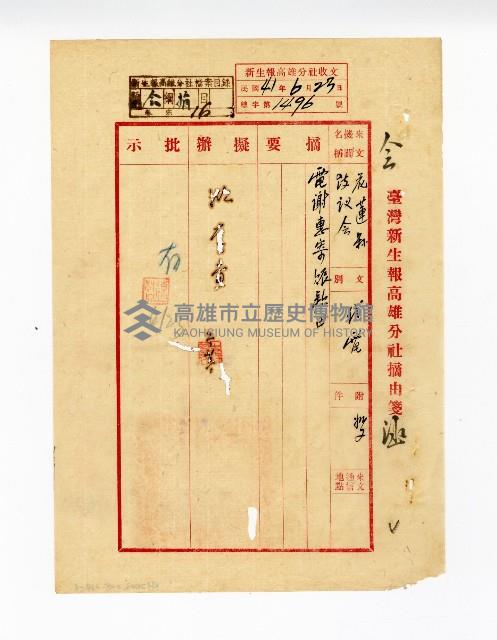 新生報高雄分社檔案目錄
會 綱 捐 目
16
新生報高雄分社收文
民國41年6月23日
總字第1496號
會
臺灣新生報高雄分社摘由箋
來文機關名稱
花蓮縣政議會
文別
代電
附件
來文通信地點
摘要
電謝惠寄賑款由
擬辦
批示
存
高雄市立歷史博物館
KAOHSIUNG MUSEUM OF HISTORY